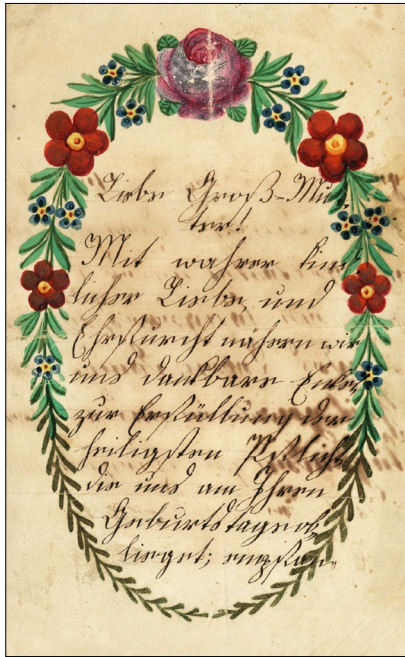 Liebe Groß-Mu-
ter!
Mit wahrer kind
licher Liebe, und
Ehrfurcht nähern wir
uns dankbare Enkel
zur Erfüllung der
heiligsten Pflicht
die uns am Ihren
Geburtstage ob
lieget; empfan-